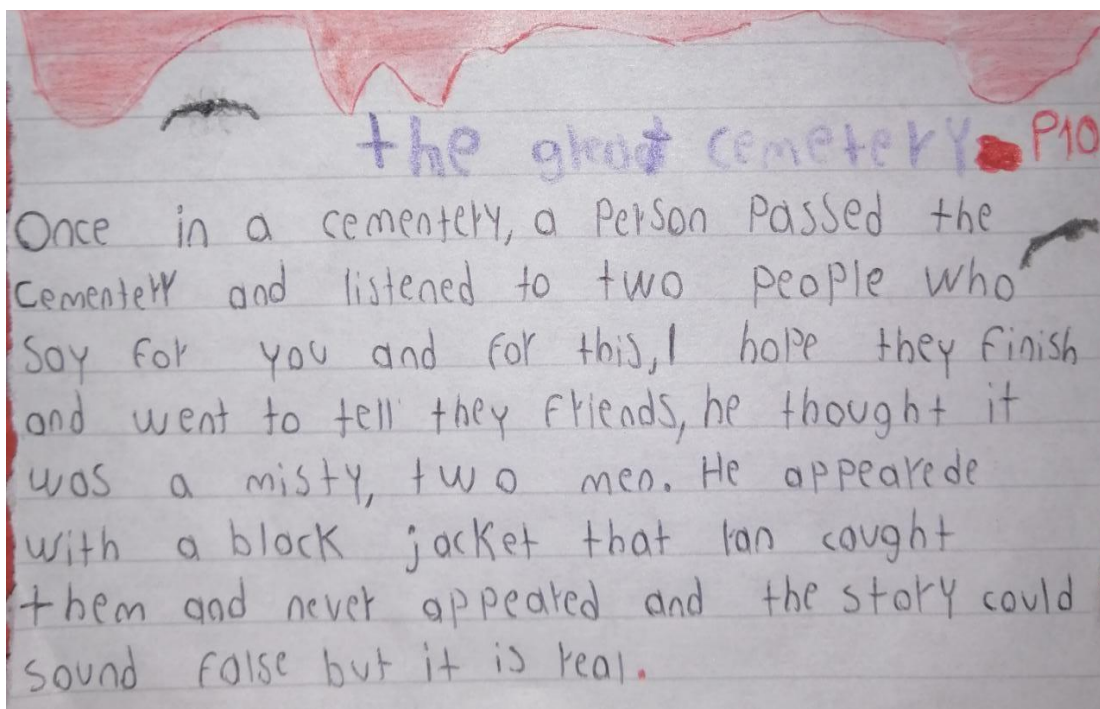 the great cemetery P10
Once in a cementery, a Person Passed the
Cementery and listened to two people who
Say for you and for this, I hope they finish
and went to tell they friends, he thought it
was a misty, two men. He appearede
with a black jacket that ran caught
them and never appeared and the story could
sound false but it is real.